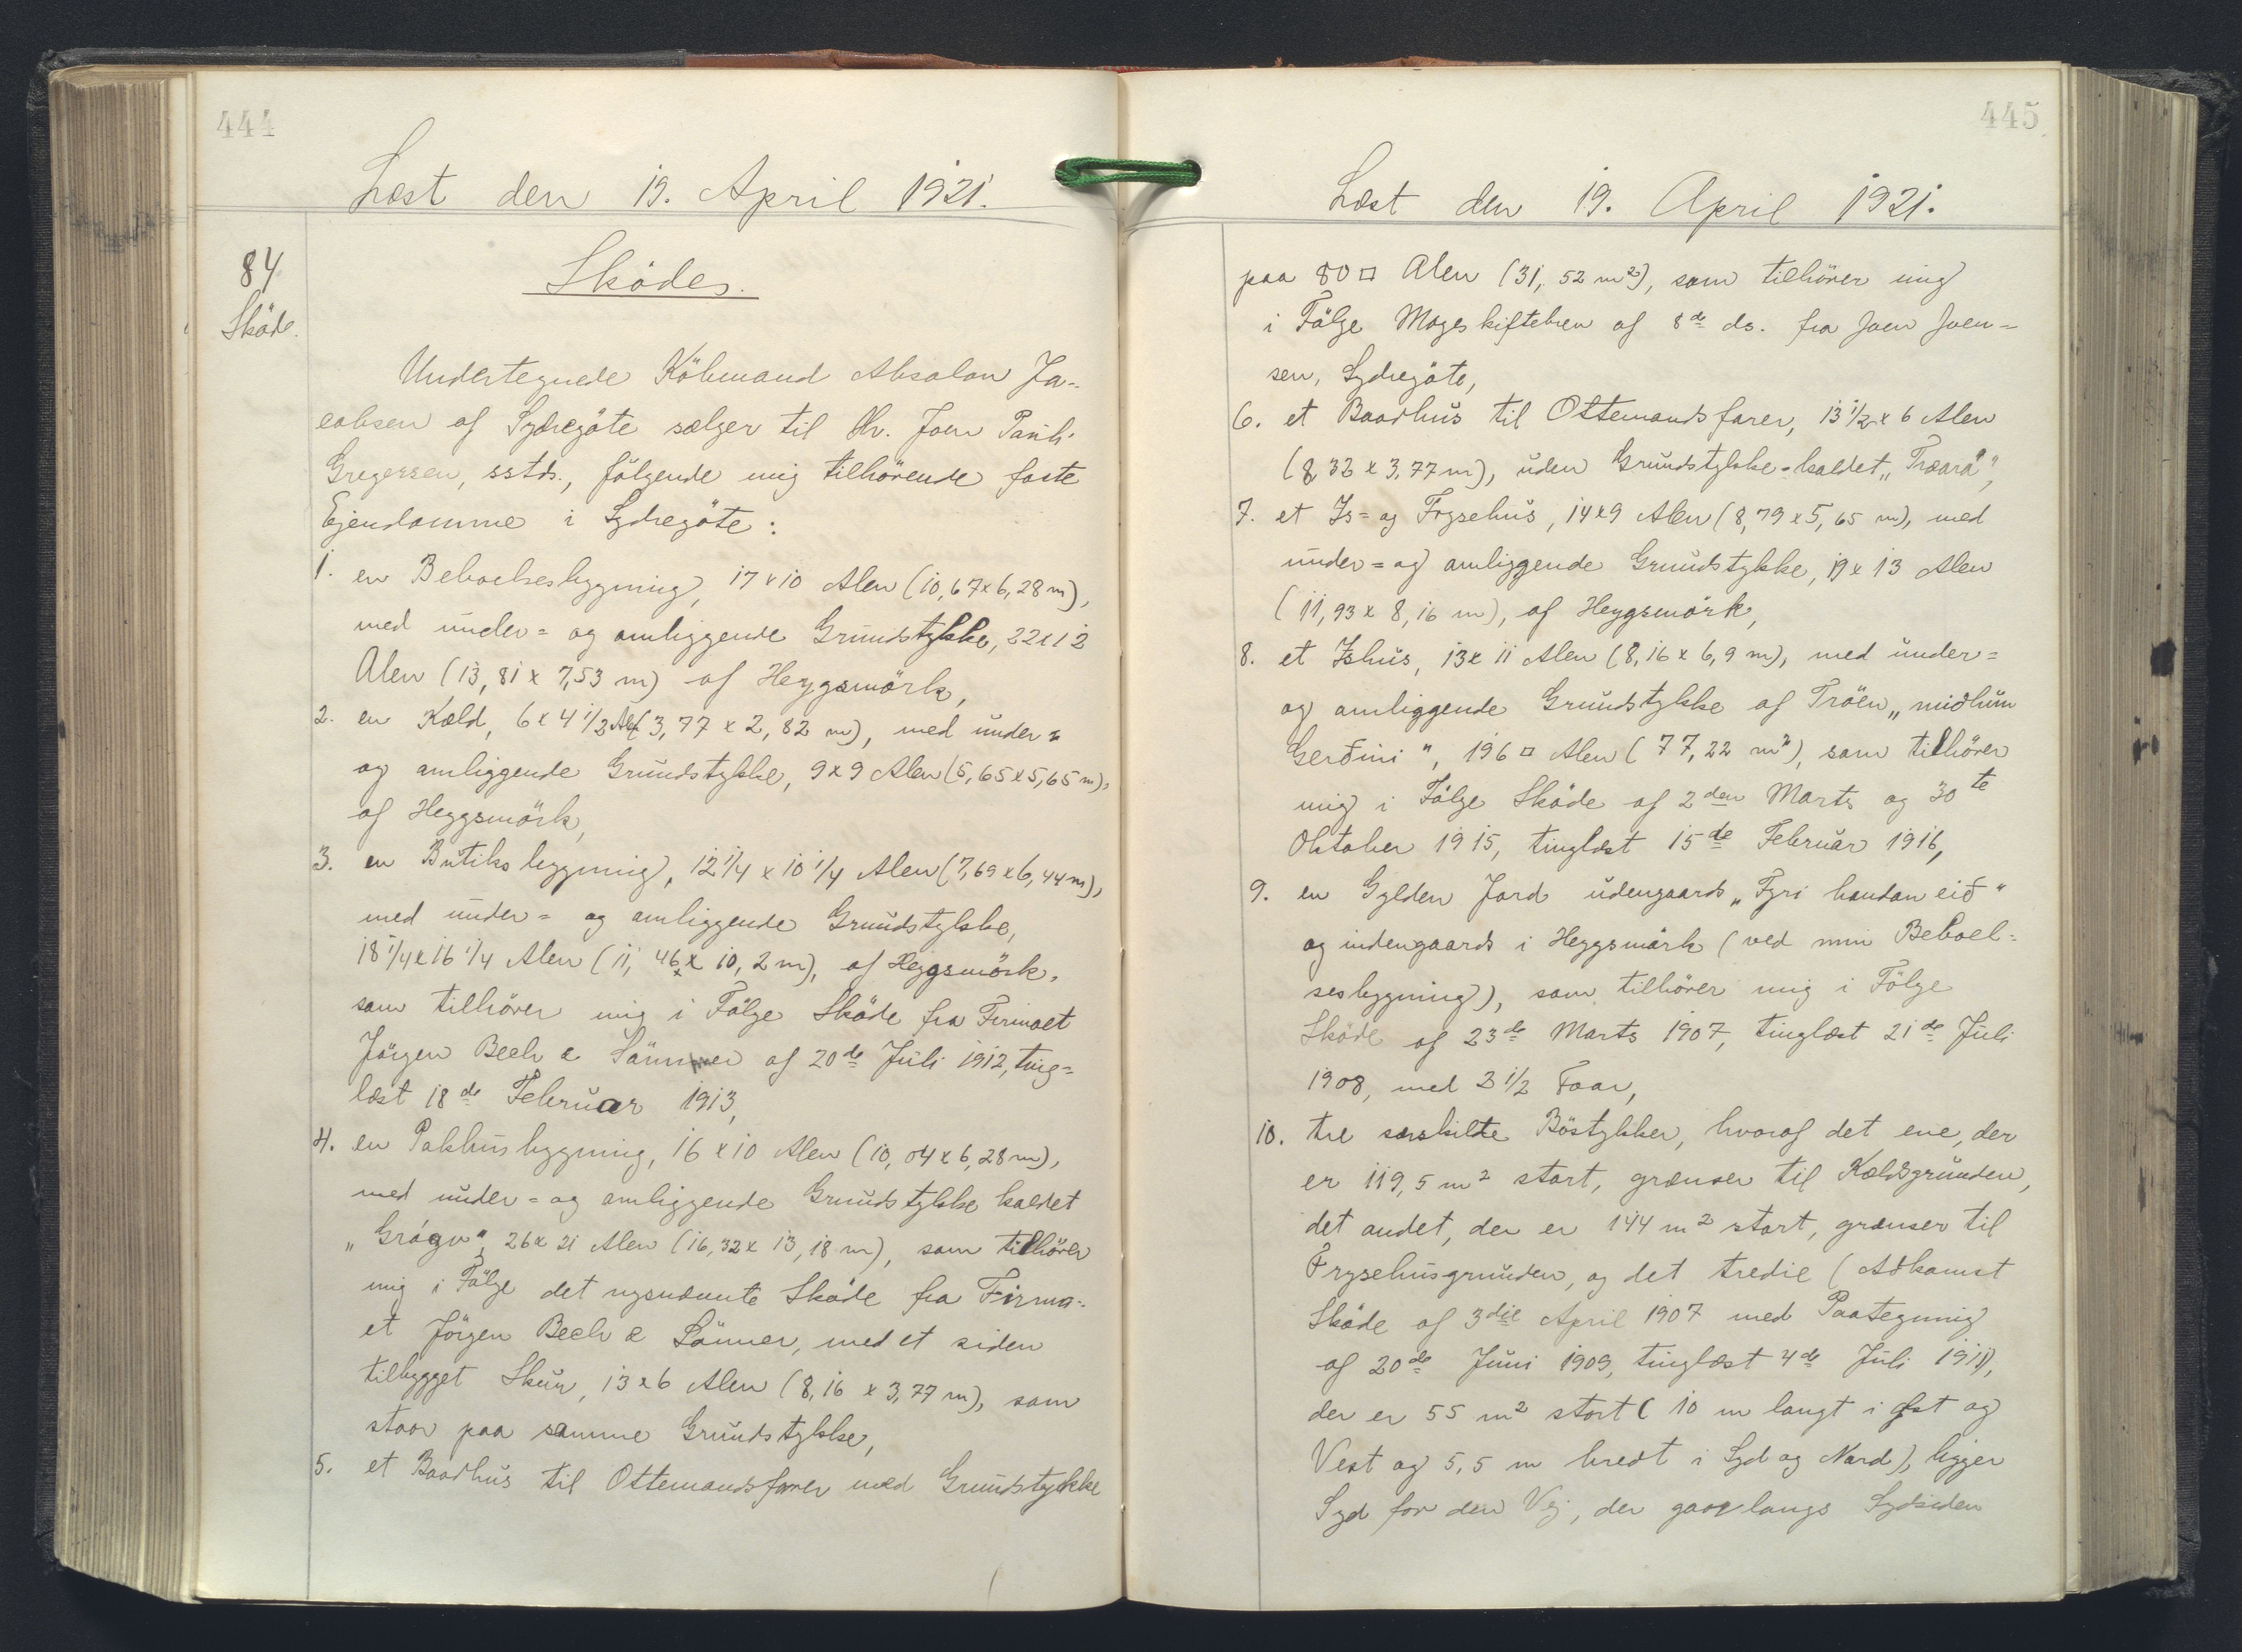 444
Læst den 19. April 1921.
84
Sköde.
Skødes.
Undertegnede Köbmand Absalon Ja-
cobsen af Sydregöte sælger til Hr. Joen Pauli
Gregersen, sstds., fölgende mig tilhörende faste
Ejendomme i Sydregöte:
1. en Beboelsesbygning, 17 x 10 Alen (10,67 x 6,28 m),
med under= og omliggende Grundstykke, 22 x 12
Alen (13,81 x 7,53 m) af Heygsmörk,
2. en Kæld, 6 x 4 1/2 Al. (3,77 x 2,82 m), med under=
og omliggende Grundstykke, 9 x 9 Alen (5,65 x 5,65 m),
af Heygsmörk,
3. en Butiksbygning, 12 1/4 x 10 1/4 Alen (7,69 x 6,44 m),
med under= og omliggende Grundstykke,
18 1/4 x 16 1/4 Alen (11,46 x 10,2 m), af Heygsmörk,
som tilhörer mig i Fölge Sköde fra Firmaet
Jörgen Bech & Sönner af 20de Juli 1912, ting=
læst 18de Februar 1913,
4. en Pakhusbygning, 16 x 10 Alen (10,04 x 6,28 m),
med under= og omliggende Grundstykke kaldet
„Grógv", 26 x 21 Alen (16,32 x 13,18 m), som tilhörer
mig i Fölge det nysnævnte Sköde fra Firma-
et Jörgen Bech & Sönner, med et siden
tilbygget Skur, 13 x 6 Alen (8,16 x 3,77 m), som
staar paa samme Grundstykke,
5. et Baadhus til Ottemandsfarer med Grundstykke
445
Læst den 19. April 1921.
paa 80 □ Alen (31,52 m²), som tilhörer mig
i Fölge Mageskiftebrev af 8de ds. fra Joen Joen=
sen, Sydregöte,
6. et Baadhus til Ottemandsfarer, 13 1/2 x 6 Alen
(8,32 x 3,77 m), uden Grundstykke - kaldet „Træará",
7. et Is= og Frysehus, 14 x 9 Alen (8,79 x 5,65 m), med
under= og omliggende Grundstykke, 19 x 13 Alen
(11,93 x 8,16 m), af Heygsmörk,
8. et Ishus, 13 x 11 Alen (8,16 x 6,9 m), med under=
og omliggende Grundstykke af Tröen „miðhum
Gerðini", 196 □ Alen (77,22 m²), som tilhörer
mig i Fölge Sköde af 2den Marts og 30te
Oktober 1915, tinglæst 15de Februar 1916,
9. en Gylden Jord udengaards „Fyri handan eið"
og indengaards i Heygsmörk (ved min Beboel=
sesbygning), som tilhörer mig i Fölge
Sköde af 23de Marts 1907, tinglæst 21de Juli
1908, med 3 1/2 Faar,
10. tre særskilte Böstykker, hvoraf det ene, der
er 119,5 m² stort, grænser til Kældsgrunden,
det andet, der er 144 m² stort, grænser til
Frysehusgrunden, og det tredie (Adkomst
Sköde af 3die April 1907 med Paategning
af 20de Juni 1909, tinglæst 4de Juli 1911),
der er 55 m² stort (10 m langt i Øst og
Vest og 5,5 m bredt i Syd og Nord), ligger
Syd for den Vej, der gaar langs Sydsiden